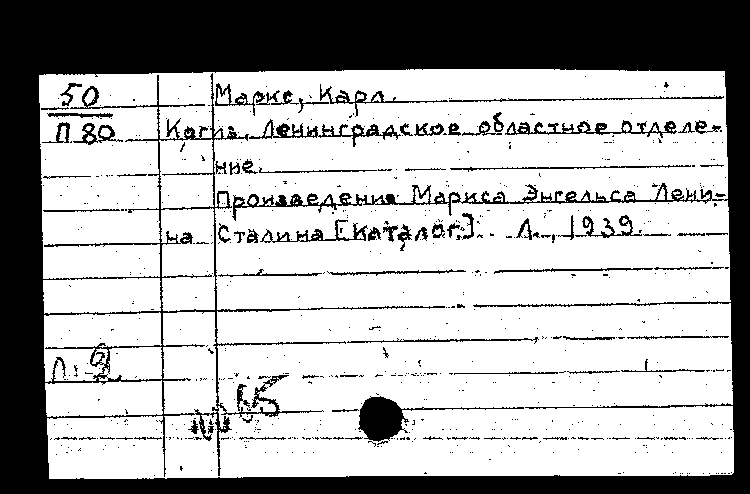 50 Маркс, Карл.
П 80 Когиз. Ленинградское областное отделе-
ние.
Произведения Маркса Энгельса Лени-
на Сталина [Каталог]. Л., 1939.